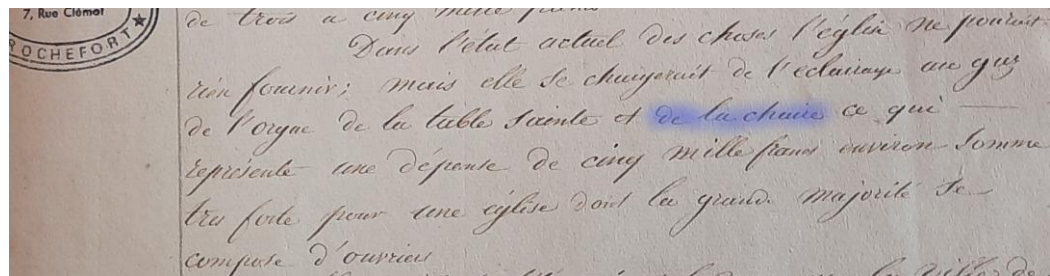 7, Rue Clémot
ROCHEFORT
de trois a cinq mille francs
Dans l'état actuel des choses l'église ne pourrait
rien fournir; mais elle se chargerait de l'eclairage au gaz
de l'orgue de la table sainte et de la chaire ce qui
représente une dépense de cinq mille francs environ somme
très forte pour une église dont la grande majorité se
compose d'ouvriers
la ville de